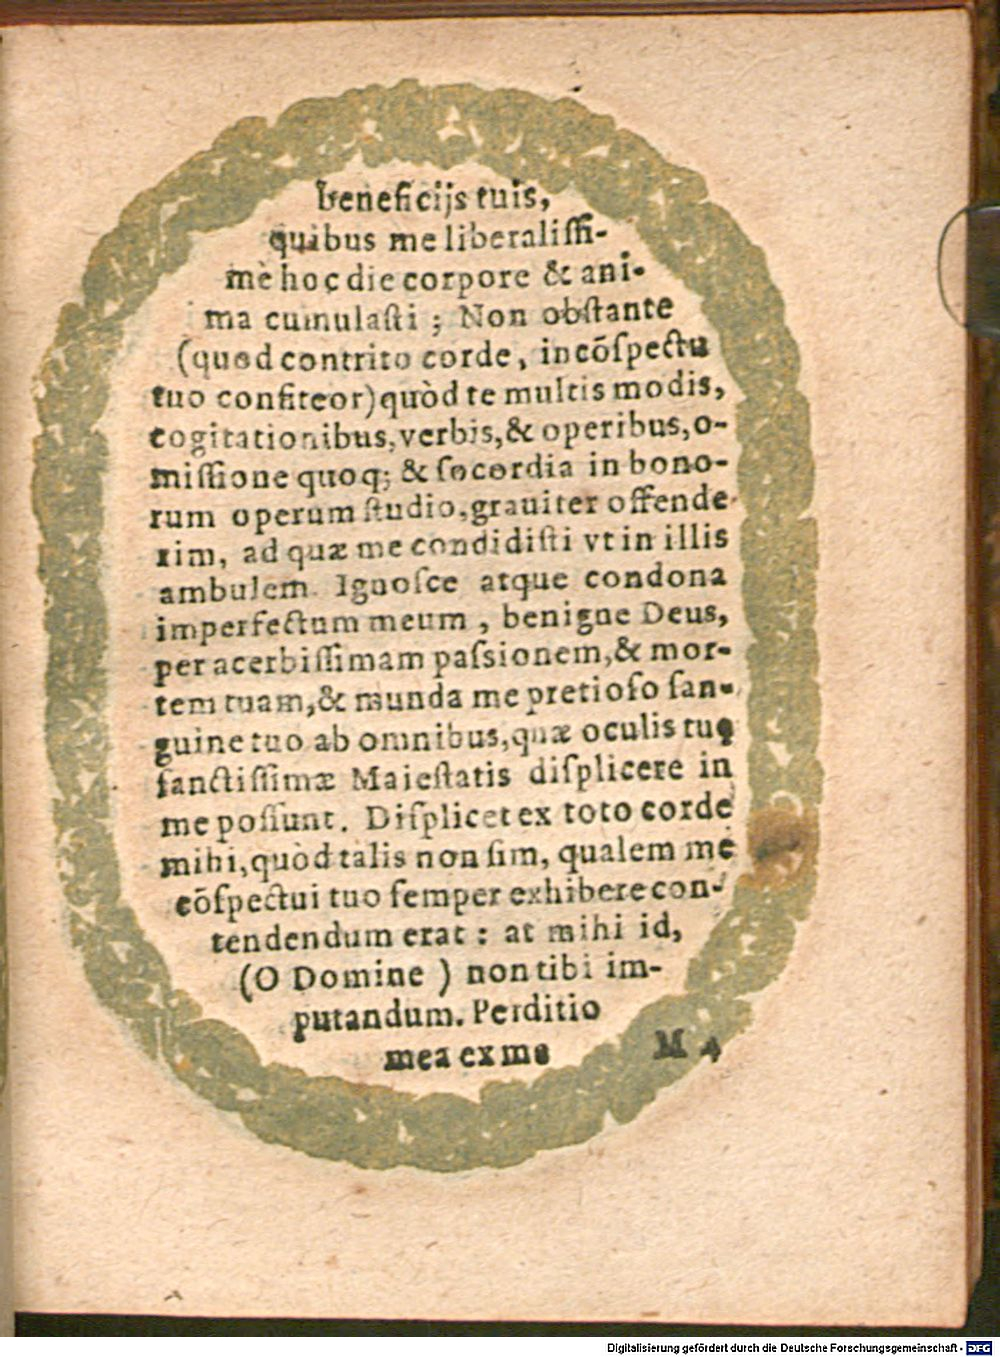 beneficijs tuis,
quibus me liberaliſſi-
mè hoc die corpore & ani-
ma cumulaſti ; Non obſtante
(quod contrito corde, in cõſpectu
tuo confiteor) quòd te multis modis,
cogitationibus, verbis, & operibus, o-
miſſione quoq; & ſocordia in bono-
rum operum ſtudio, grauiter offende-
rim, ad quæ me condidiſti vt in illis
ambulem. Ignoſce atque condona
imperfectum meum , benigne Deus,
per acerbiſſimam paſsionem, & mor-
tem tuam, & munda me pretioſo ſan-
guine tuo ab omnibus, quæ oculis tuę
ſanctiſſimæ Maieſtatis diſplicere in
me poſſunt. Diſplicet ex toto corde
mihi, quòd talis non ſim, qualem me
cõſpectui tuo ſemper exhibere con-
tendendum erat : at mihi id,
(O Domine ) non tibi im-
putandum. Perditio
mea ex me
M 4
Digitalisierung gefördert durch die Deutsche Forschungsgemeinschaft - DFG